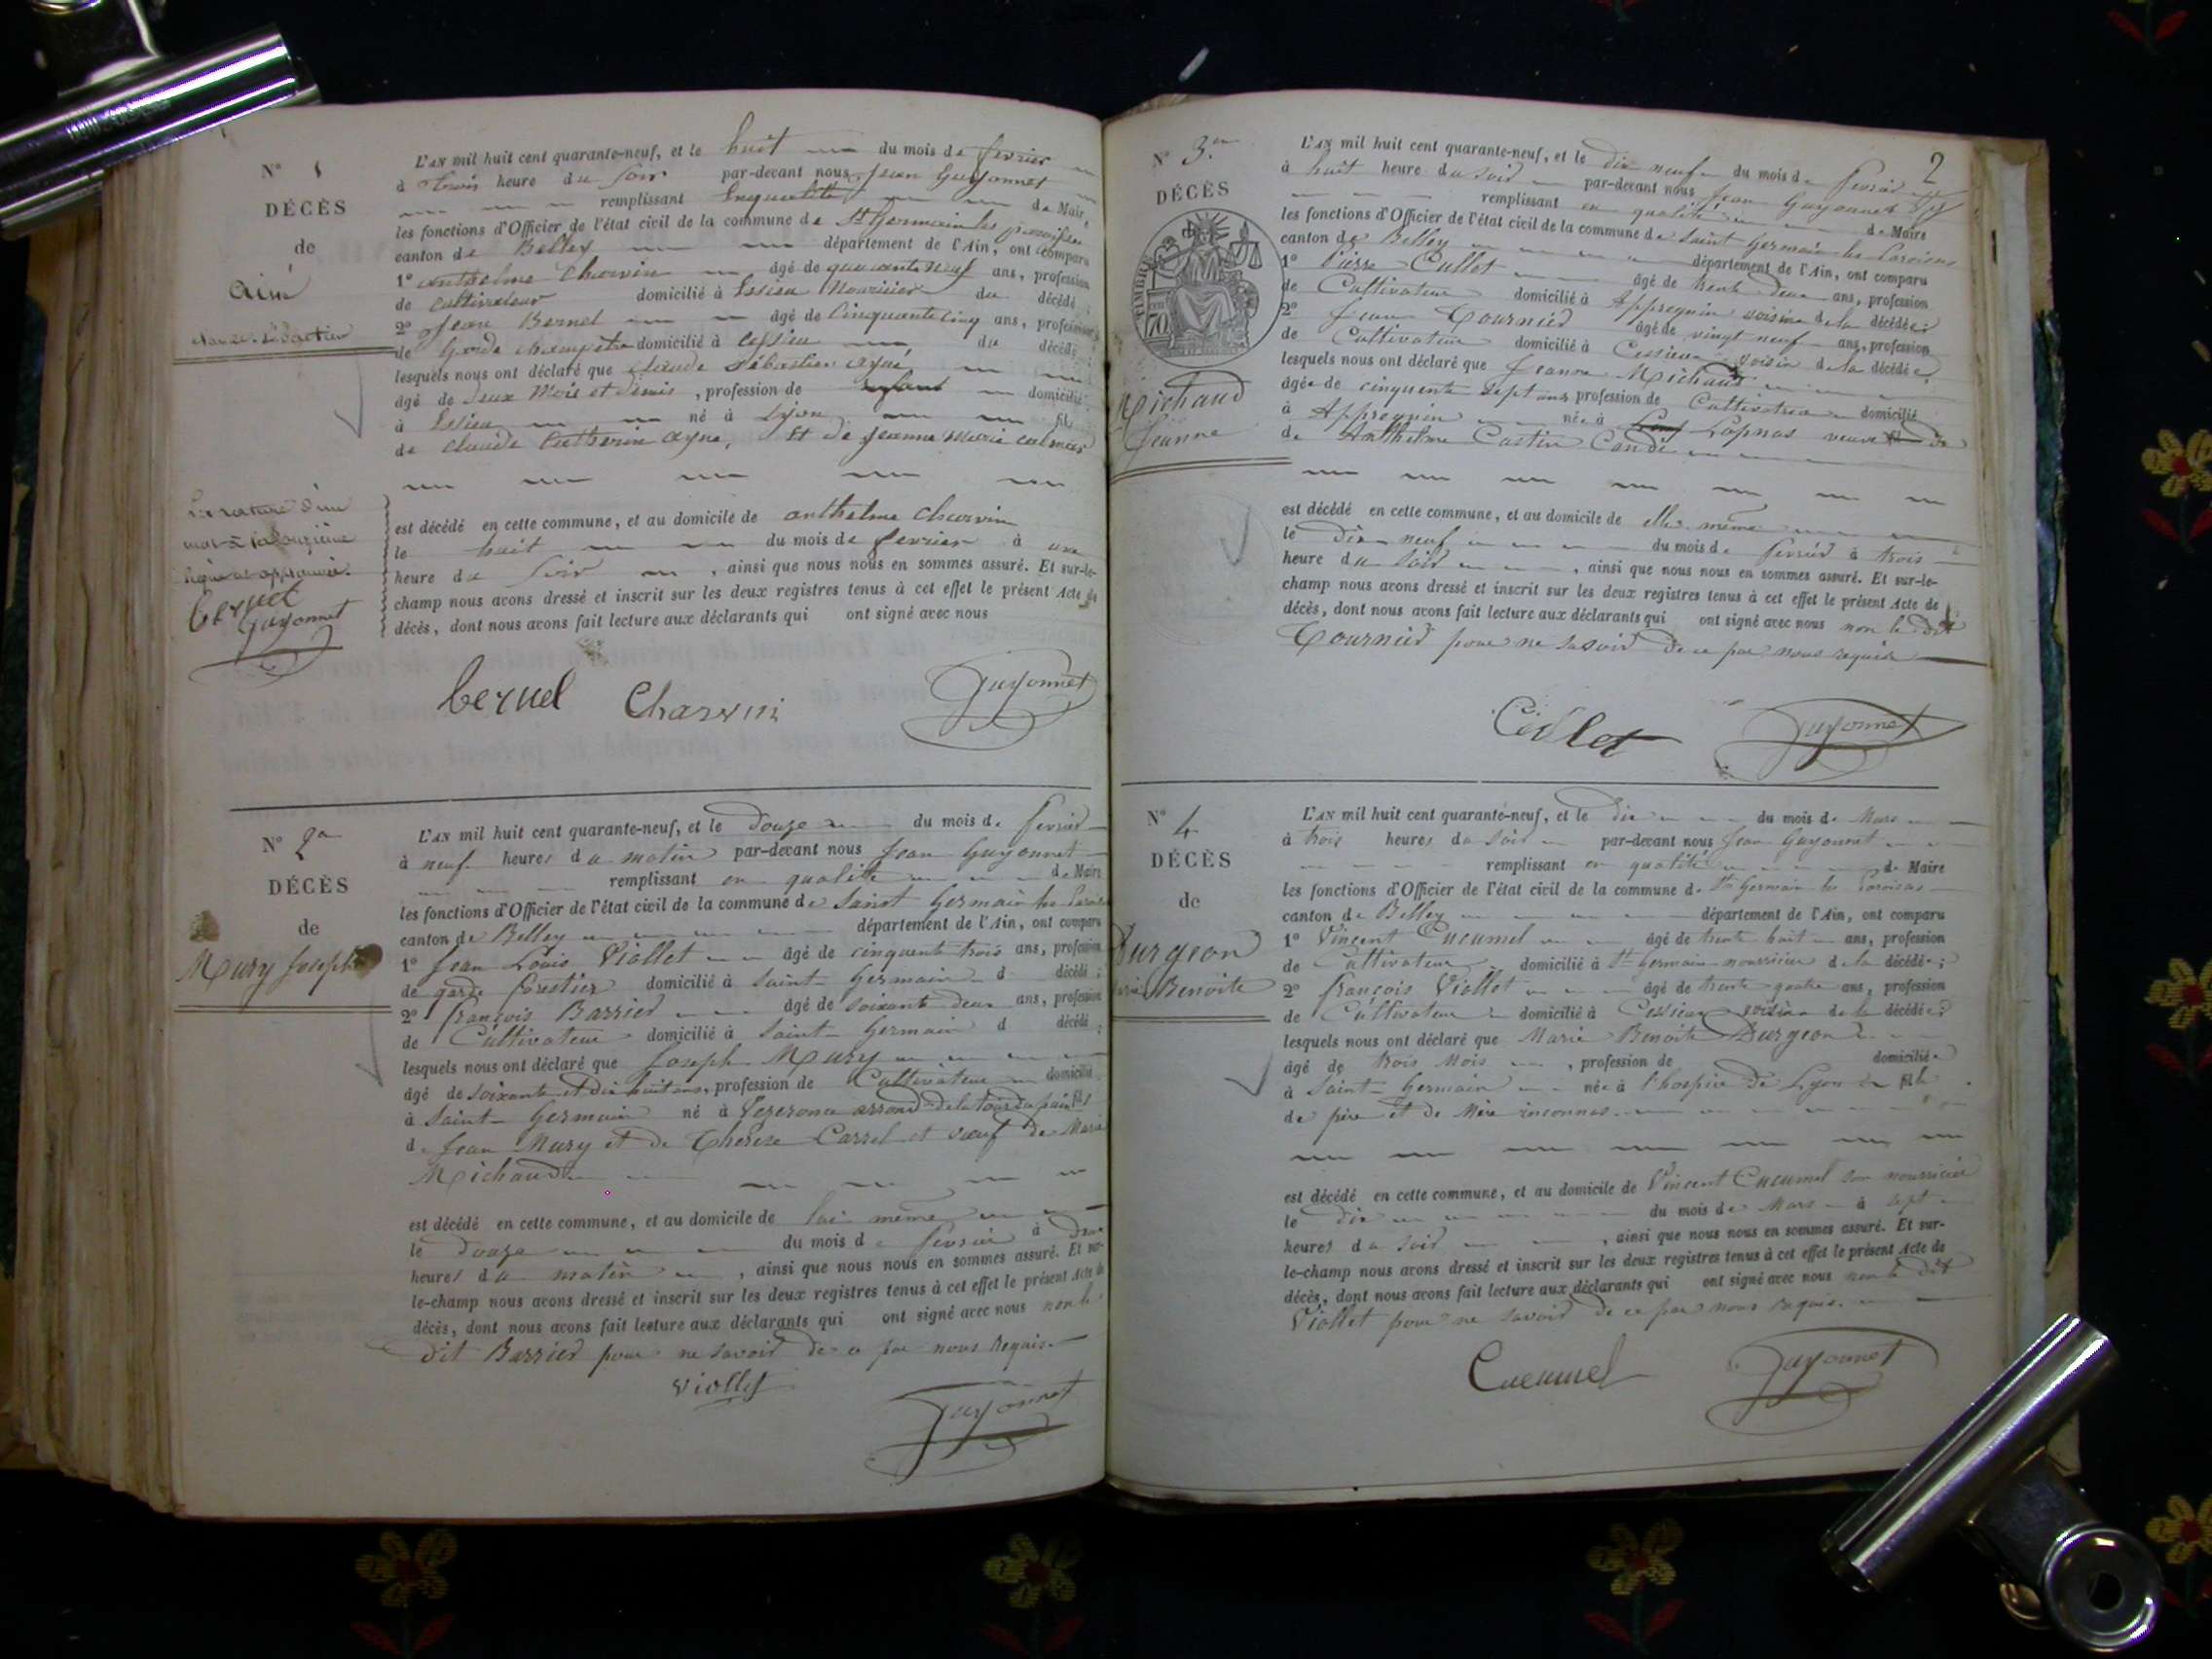 N° 1
DÉCÈS
de
Aimé
claude Sébastien
L'AN mil huit cent quarante-neuf, et le huit du mois de fevrier
à trois heure du soir par-devant nous Jean Guyonnet
remplissant de Maire
les fonctions d'Officier de l'état civil de la commune de St Germain les paroisses
canton de Belley département de l'Ain, ont comparu
1° anthelme Charvin âgé de quarante neuf ans, profession
de cultivateur domicilié à Essieu nourricier du décédé
2° Jean Bernel âgé de Cinquante cinq ans, profession
de Garde champêtre domicilié à du décédé
lesquels nous ont déclaré que Claude Sébastien aymé
âgé de deux Mois et demis, profession de domicilié
à Essieu né à Lyon fils
de claude Catherin ayné, Et de Jeanne Marie
La rature d'un
mot à la douzième
ligne est approuvée.
bernel
Guyonnet
est décédé en cette commune, et au domicile de anthelme Charvin
le huit du mois de fevrier à une
heure du soir, ainsi que nous nous en sommes assuré. Et sur-le-
champ nous avons dressé et inscrit sur les deux registres tenus à cet effet le présent Acte de
décès, dont nous avons fait lecture aux déclarants qui ont signé avec nous
bernel Charvin Guyonnet
N° 2
DÉCÈS
de
Mury Joseph
L'AN mil huit cent quarante-neuf, et le Douze du mois de fevrier
à neuf heures du matin par-devant nous Jean Guyonnet
remplissant en qualité de Maire
les fonctions d'Officier de l'état civil de la commune de Saint Germain les Paroisses
canton de Belley département de l'Ain, ont comparu
1° Jean Louis Viollet âgé de cinquante trois ans, profession
de garde forestier domicilié à Saint Germain d décédé;
2° François Barrier âgé de soixante deux ans, profession
de Cultivateur domicilié à Saint Germain d décédé;
lesquels nous ont déclaré que Joseph Mury
âgé de soixante et dix huit ans, profession de Cultivateur domicilié
à Saint Germain né à Vezeronce arrond de la tour du pain fils
de Jean Mury et de Thérèse Carrel et vœuf de Marie
Michaud
est décédé en cette commune, et au domicile de lui même
le douze du mois de fevrier à deux
heures du matin, ainsi que nous nous en sommes assuré. Et sur-
le-champ nous avons dressé et inscrit sur les deux registres tenus à cet effet le présent Acte de
décès, dont nous avons fait lecture aux déclarants qui ont signé avec nous non le
dit Barrier pour ne savoir de ce par nous Requis.
viollet
Guyonnet
2
N° 3
DÉCÈS
TIMBRE
70
Michaud
Jeanne
L'AN mil huit cent quarante-neuf, et le dix neuf du mois de fevrier
à huit heure du soir par-devant nous Jean Guyonnet
remplissant en qualité de Maire
les fonctions d'Officier de l'état civil de la commune de Saint Germain les Paroisses
canton de Belley département de l'Ain, ont comparu
1° Pierre Cullet âgé de trente deux ans, profession
de Cultivateur domicilié à Appregnin voisin de la décédée;
2° Jean Tournier âgé de vingt neuf ans, profession
de Cultivateur domicilié à Cessieux voisin de la décédée;
lesquels nous ont déclaré que Jeanne Michaud
âgée de cinquante sept ans profession de Cultivatrice domicilié
à Appregnin née à Lopnas veuve de
de Anthelme Castin Candi
est décédé en cette commune, et au domicile de elle même
le Dix neuf du mois de fevrier à trois
heure du soir, ainsi que nous nous en sommes assuré. Et sur-le-
champ nous avons dressé et inscrit sur les deux registres tenus à cet effet le présent Acte de
décès, dont nous avons fait lecture aux déclarants qui ont signé avec nous non le dit
Tournier pour ne savoir de ce par nous requis
Cullet Guyonnet
N° 4
DÉCÈS
de
Durgeon
Marie Benoite
L'AN mil huit cent quarante-neuf, et le dix du mois de Mars
à trois heures du soir par-devant nous Jean Guyonnet
remplissant en qualité de Maire
les fonctions d'Officier de l'état civil de la commune de St Germain les Paroisses
canton de Belley département de l'Ain, ont comparu
1° Vincent Cucumel âgé de trente huit ans, profession
de Cultivateur domicilié à St Germain nourricier de la décédée;
2° François Viollet âgé de trente quatre ans, profession
de Cultivateur domicilié à Cessieux voisin de la décédée;
lesquels nous ont déclaré que Marie Benoite Durgeon
âgé de trois Mois, profession de domiciliée
à Saint Germain née à l'hospice de Lyon fille
de père et de Mère inconnus.
est décédé en cette commune, et au domicile de Vincent Cucumel son nourricier
le dix du mois de Mars à sept
heures du soir, ainsi que nous nous en sommes assuré. Et sur-
le-champ nous avons dressé et inscrit sur les deux registres tenus à cet effet le présent Acte de
décès, dont nous avons fait lecture aux déclarants qui ont signé avec nous non le dit
Viollet pour ne savoir de ce par nous requis.
Cucumel Guyonnet